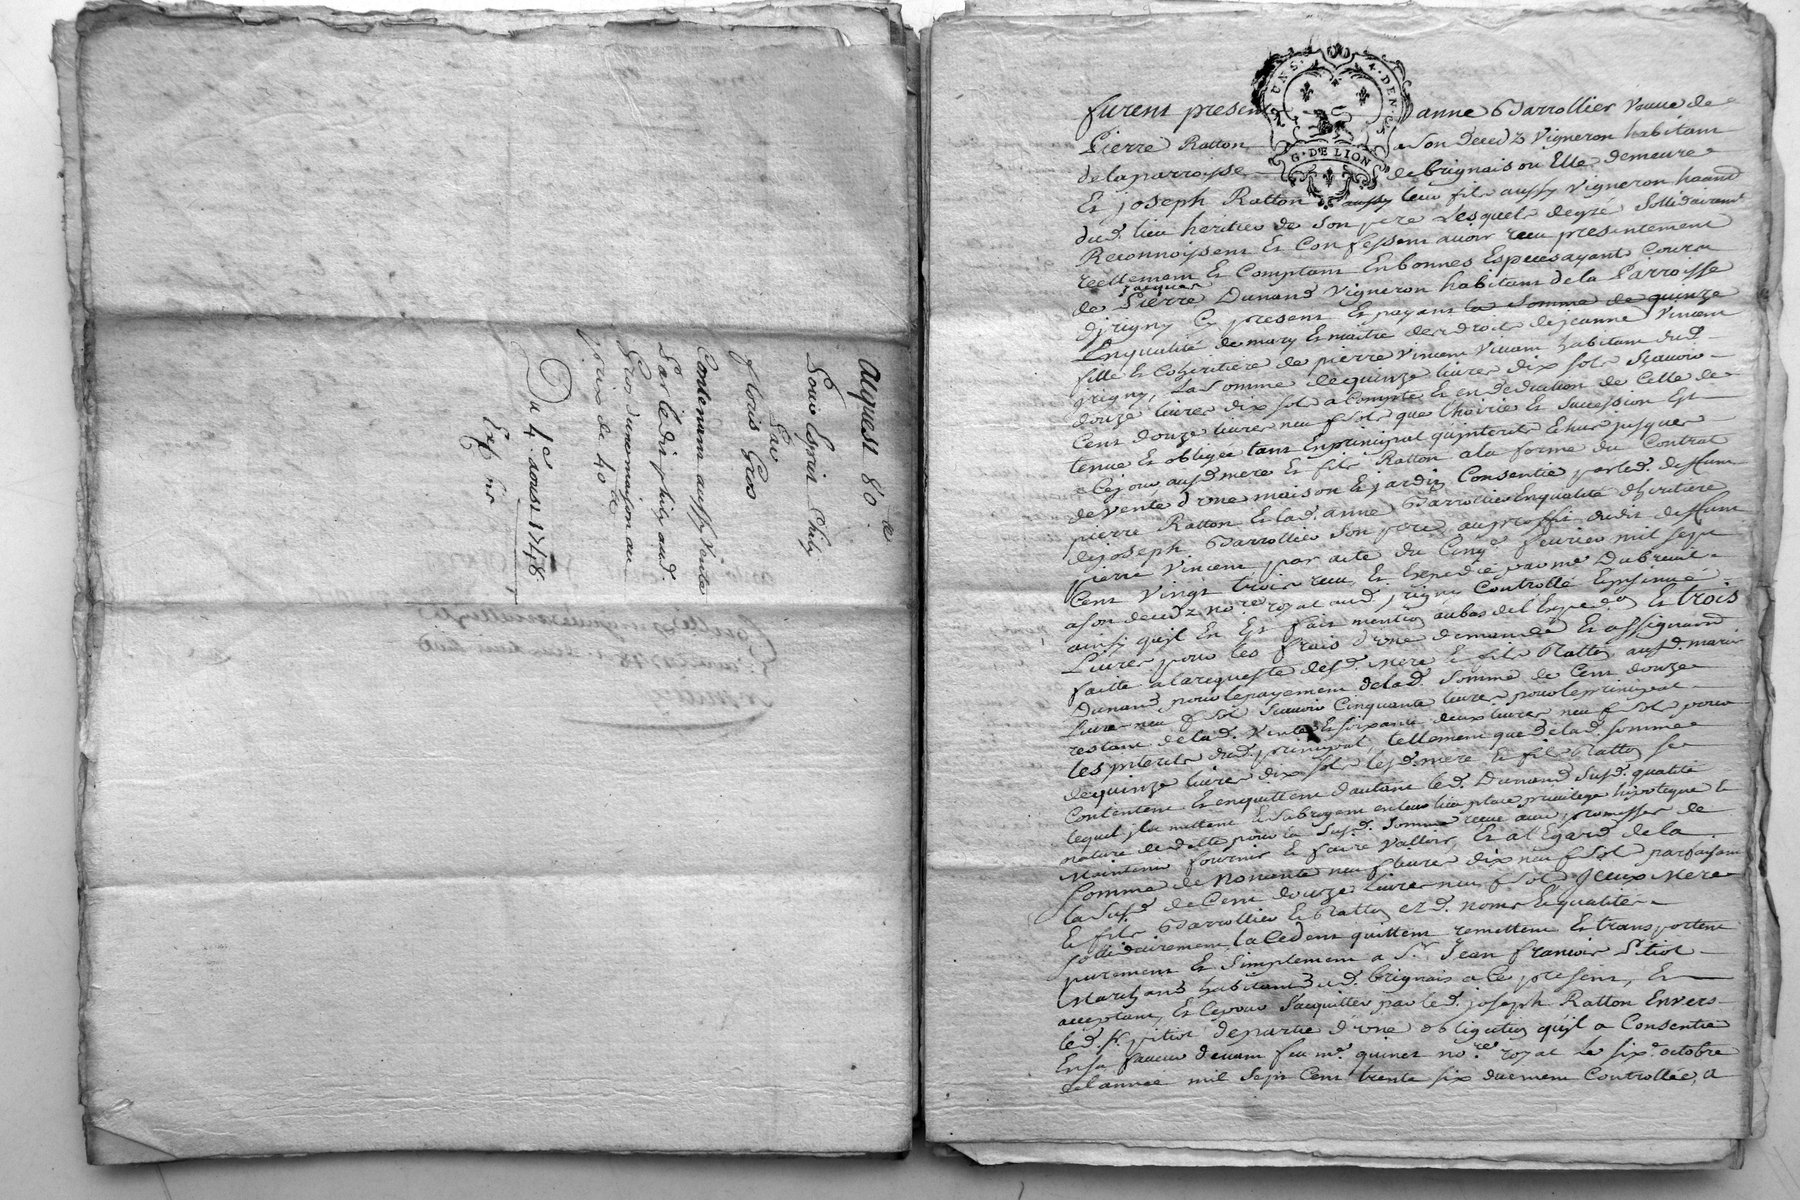 aquest 80 ce
Pour Esprit Phily
Par
floris Gros
Contenant aussy Vente
Par led. phily aud.
Gros d'une maison au
prix de 40 ll
Du 4e. aoust 1748
Expn. nr
UN S. 4. DEN IES.
G. DE LION
furent presen anne Barrollier veuve de
Pierre Ratton a son deced z Vigneron habitant
de la parroisse de brignais ou Elle demeure
Et joseph Ratton aussy leur fils aussy Vigneron haand
dud. lieu heritier de Son pere Lesquels degré Sollidairemt
Reconnoissent Et Confessent avoir receu presentement
reellement Et Comptant En bonnes Especes ayant Cours
jacques
de Pierre Dunand Vigneron habitant de la Parroisse
djrigny Cy present Et payant la Somme de quinze
En qualité de mary Et maitre des droits de jeanne Vincent
fille Et Coheritiere de pierre Vincent Vivant habitant dud.
jrigny, La Somme de quinze livres dix sols Scavoir
douze livres dix sols a Compte Et en deduction de Celle de
Cent douze livres neuf sols que l'hoirie Et Succession Est
tenue Et obligée tant En principal qu'interets Echus jusques
a Cejour auxd. mere Et fils Ratton a la forme du Contrat
de Vente d'une maison Et jardin Consentie par led. deffunt
pierre Ratton Et lad. anne Barrollier En qualité d'heritiere
de joseph Barrollier Son pere au proffit dudit deffunt
pierre Vincent par acte du Cinqe. fevrier mil sept
Cent Vingt trois receu Et Expedié par me Dubreuil
a son decedz nore. royal aud. jrigny Controllé Et jnsinué
ainsy qu'jl En Est fait mention au bas de l'Expedon Et trois
Livres pour les frais d'une demande Et assignaon
faitte a la requeste desd. mere Et fils Ratton aud. marie
Dunand pour le payement de lad. Somme de Cent douze
Livres neuf sols Scavoir Cinquante livres pour le principal
restant de lad. Vente Et soixante deux livres neuf sols pour
les jnterets dud. principal, tellement que de lad. Somme
de quinze livres dix sols lesd. mere Et fils Ratton se
Contentent Et en quittent d'autant led. Dunand Susd. qualité
lequel jls mettent Et Subrogent en leur lieu place privilege hypoteque Et
nature de dette pour la Susd. Somme receue avec promesses de
Maintenir fournir Et faire Valloir, Et a l'Egard de la
Somme de Nonante neuf livres dix neuf sols parfaisant
la Susd. de Cent douze livres neuf sols jceux Mere
Et fils Barrollier Et Ratton ezd. noms Et qualités
Sollidairement la Cedent quittent remettent Et transportent
purement Et Simplement a Sr. Jean francois Pitiot
Marchand habitant aud. brignais a Ce present, Et
acceptant, Et Ce pour S'acquitter par led. joseph Ratton Envers
led. Sr. pitiot de partie d'une obligation qu'jl a Consentie
En sa faveur devant feu me. quinet nore. royal le six. octobre
de l'année mil Sept Cent trente six duement Controllée, a